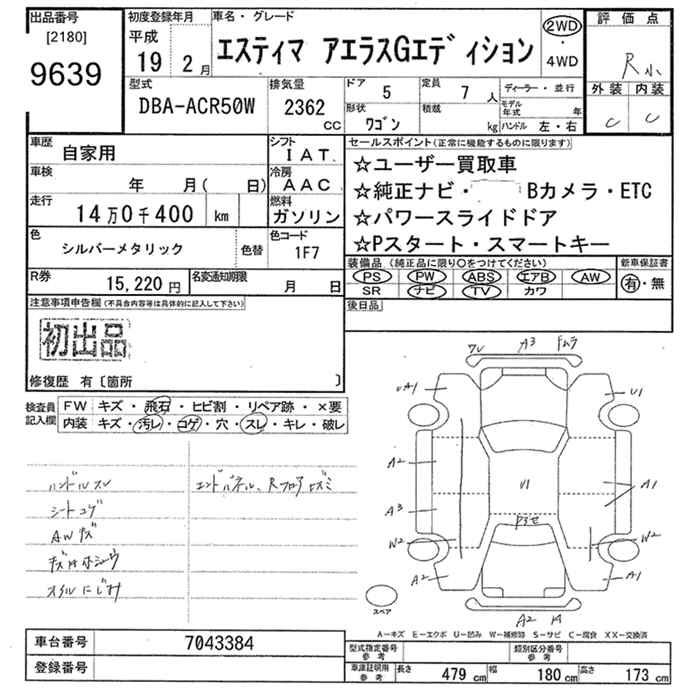 出品番号
[2180]
9639
初度登録年月
平成
19 2 月
車名・グレード
エスティマ アエラスGエディション
2WD
・
4WD
評価点
R小
外装 内装
C C
型式
DBA-ACR50W
排気量
2362 CC
ドア 5
定員 7 人
形状 ワゴン
積載 kg
ディーラー・並行
モデル年式 年
ハンドル 左・右
車歴 自家用
シフト IAT
車検 年 月( 日)
冷房 AAC
走行 14万0千400 km
燃料 ガソリン
色 シルバーメタリック 色替
色コード 1F7
R券 15,220円
名変通知期限 月 日
セールスポイント(正常に機能するものに限ります)
☆ユーザー買取車
☆純正ナビ・ Bカメラ・ETC
☆パワースライドドア
☆Pスタート・スマートキー
装備品(純正品に限り〇をつけてください)
PS PW ABS エアB AW
SR ナビ TV カワ
新車保証書
有・無
後日品
注意事項申告欄(不具合内容等は具体的に記入して下さい)
初出品
修復歴 有〔箇所 〕
検査員記入欄
FW キズ・飛石・ヒビ割・リペア跡・×要
内装 キズ・汚レ・コゲ・穴・スレ・キレ・破レ
ハンドルスレ
シートコゲ
AWキズ
エンドパネル、Rフロア
ワレ A3
UA1 U1
A2
A3 U1 A1
W2 W2
A2 A1
A2
スペア
A―キズ E―エクボ U―凹み W―補修跡 S―サビ C―腐食 XX―交換済
車台番号 7043384
登録番号
型式指定番号 参考
類別区分番号 参考
車庫証明用 参考
長さ 479 cm 幅 180 cm 高さ 173 cm